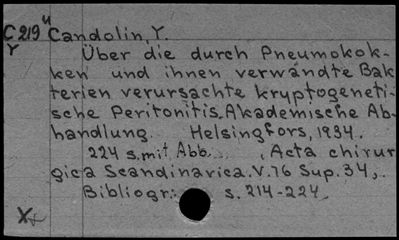 C219u Candolin, Y.
Y
Über die durch Pneumokok-
ken und ihnen verwandte Bak
terien verursachte kryptogeneti-
sche Peritonitis. Akademische Ab-
handlung. Helsingfors, 1934.
224 s.mit Abb. , Acta chirur
gica Scandinavica. V.76 Sup. 34,.
Bibliogr.: s. 214-224
X